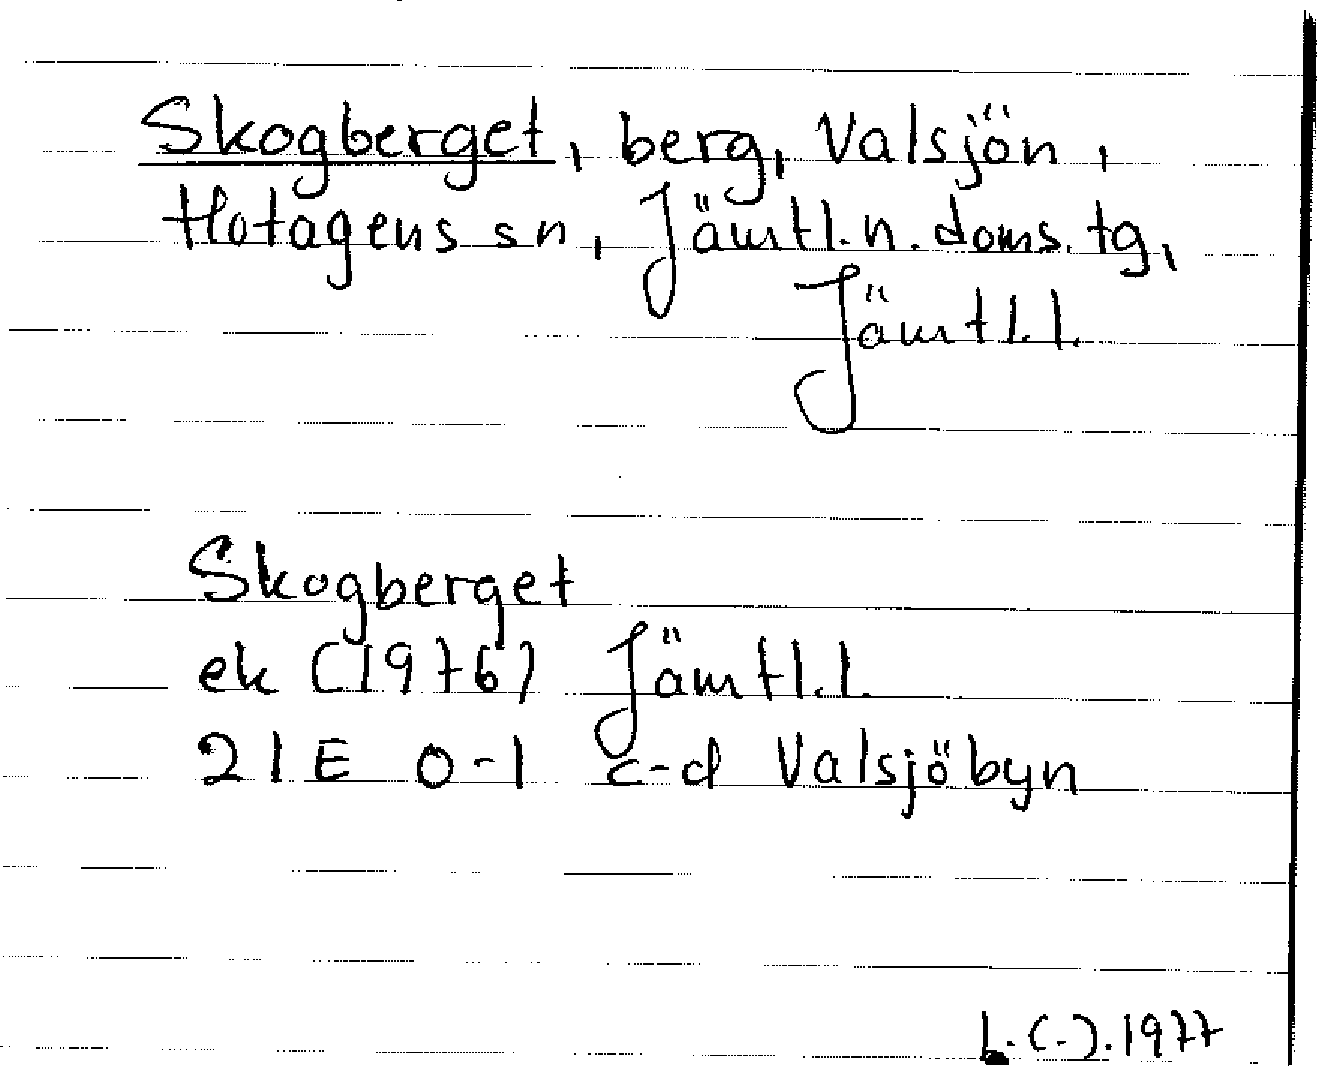 Skogberget, berg, Valsjön,
Hotagens sn, Jämtl. n. doms. tg,
Jämtl. l.
Skogberget
ek (1976) Jämtl. l.
21E 0-1 c-d Valsjöbyn
L. (-). 1977